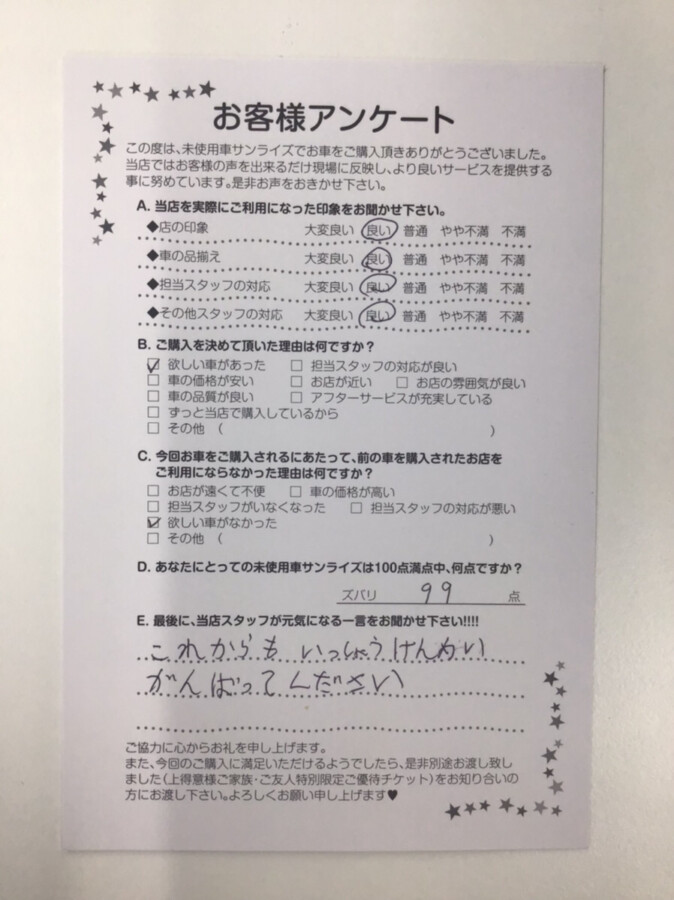 お客様アンケート
この度は、未使用車サンライズでお車をご購入頂きありがとうございました。
当店ではお客様の声を出来るだけ現場に反映し、より良いサービスを提供する
事に努めています。是非お声をおきかせ下さい。
A. 当店を実際にご利用になった印象をお聞かせ下さい。
◆店の印象 大変良い 良い 普通 やや不満 不満
◆車の品揃え 大変良い 良い 普通 やや不満 不満
◆担当スタッフの対応 大変良い 良い 普通 やや不満 不満
◆その他スタッフの対応 大変良い 良い 普通 やや不満 不満
B. ご購入を決めて頂いた理由は何ですか?
☑ 欲しい車があった □ 担当スタッフの対応が良い
□ 車の価格が安い □ お店が近い □ お店の雰囲気が良い
□ 車の品質が良い □ アフターサービスが充実している
□ ずっと当店で購入しているから
□ その他 ( )
C. 今回お車をご購入されるにあたって、前の車を購入されたお店を
ご利用にならなかった理由は何ですか?
□ お店が遠くて不便 □ 車の価格が高い
□ 担当スタッフがいなくなった □ 担当スタッフの対応が悪い
☑ 欲しい車がなかった
□ その他 ( )
D. あなたにとっての未使用車サンライズは100点満点中、何点ですか?
ズバリ 99 点
E. 最後に、当店スタッフが元気になる一言をお聞かせ下さい!!!!
これからも いっしょうけんめい
がんばってください
ご協力に心からお礼を申し上げます。
また、今回のご購入に満足いただけるようでしたら、是非別途お渡し致し
ました(上得意様ご家族・ご友人特別限定ご優待チケット)をお知り合いの
方にお渡し下さい。よろしくお願い申し上げます♥